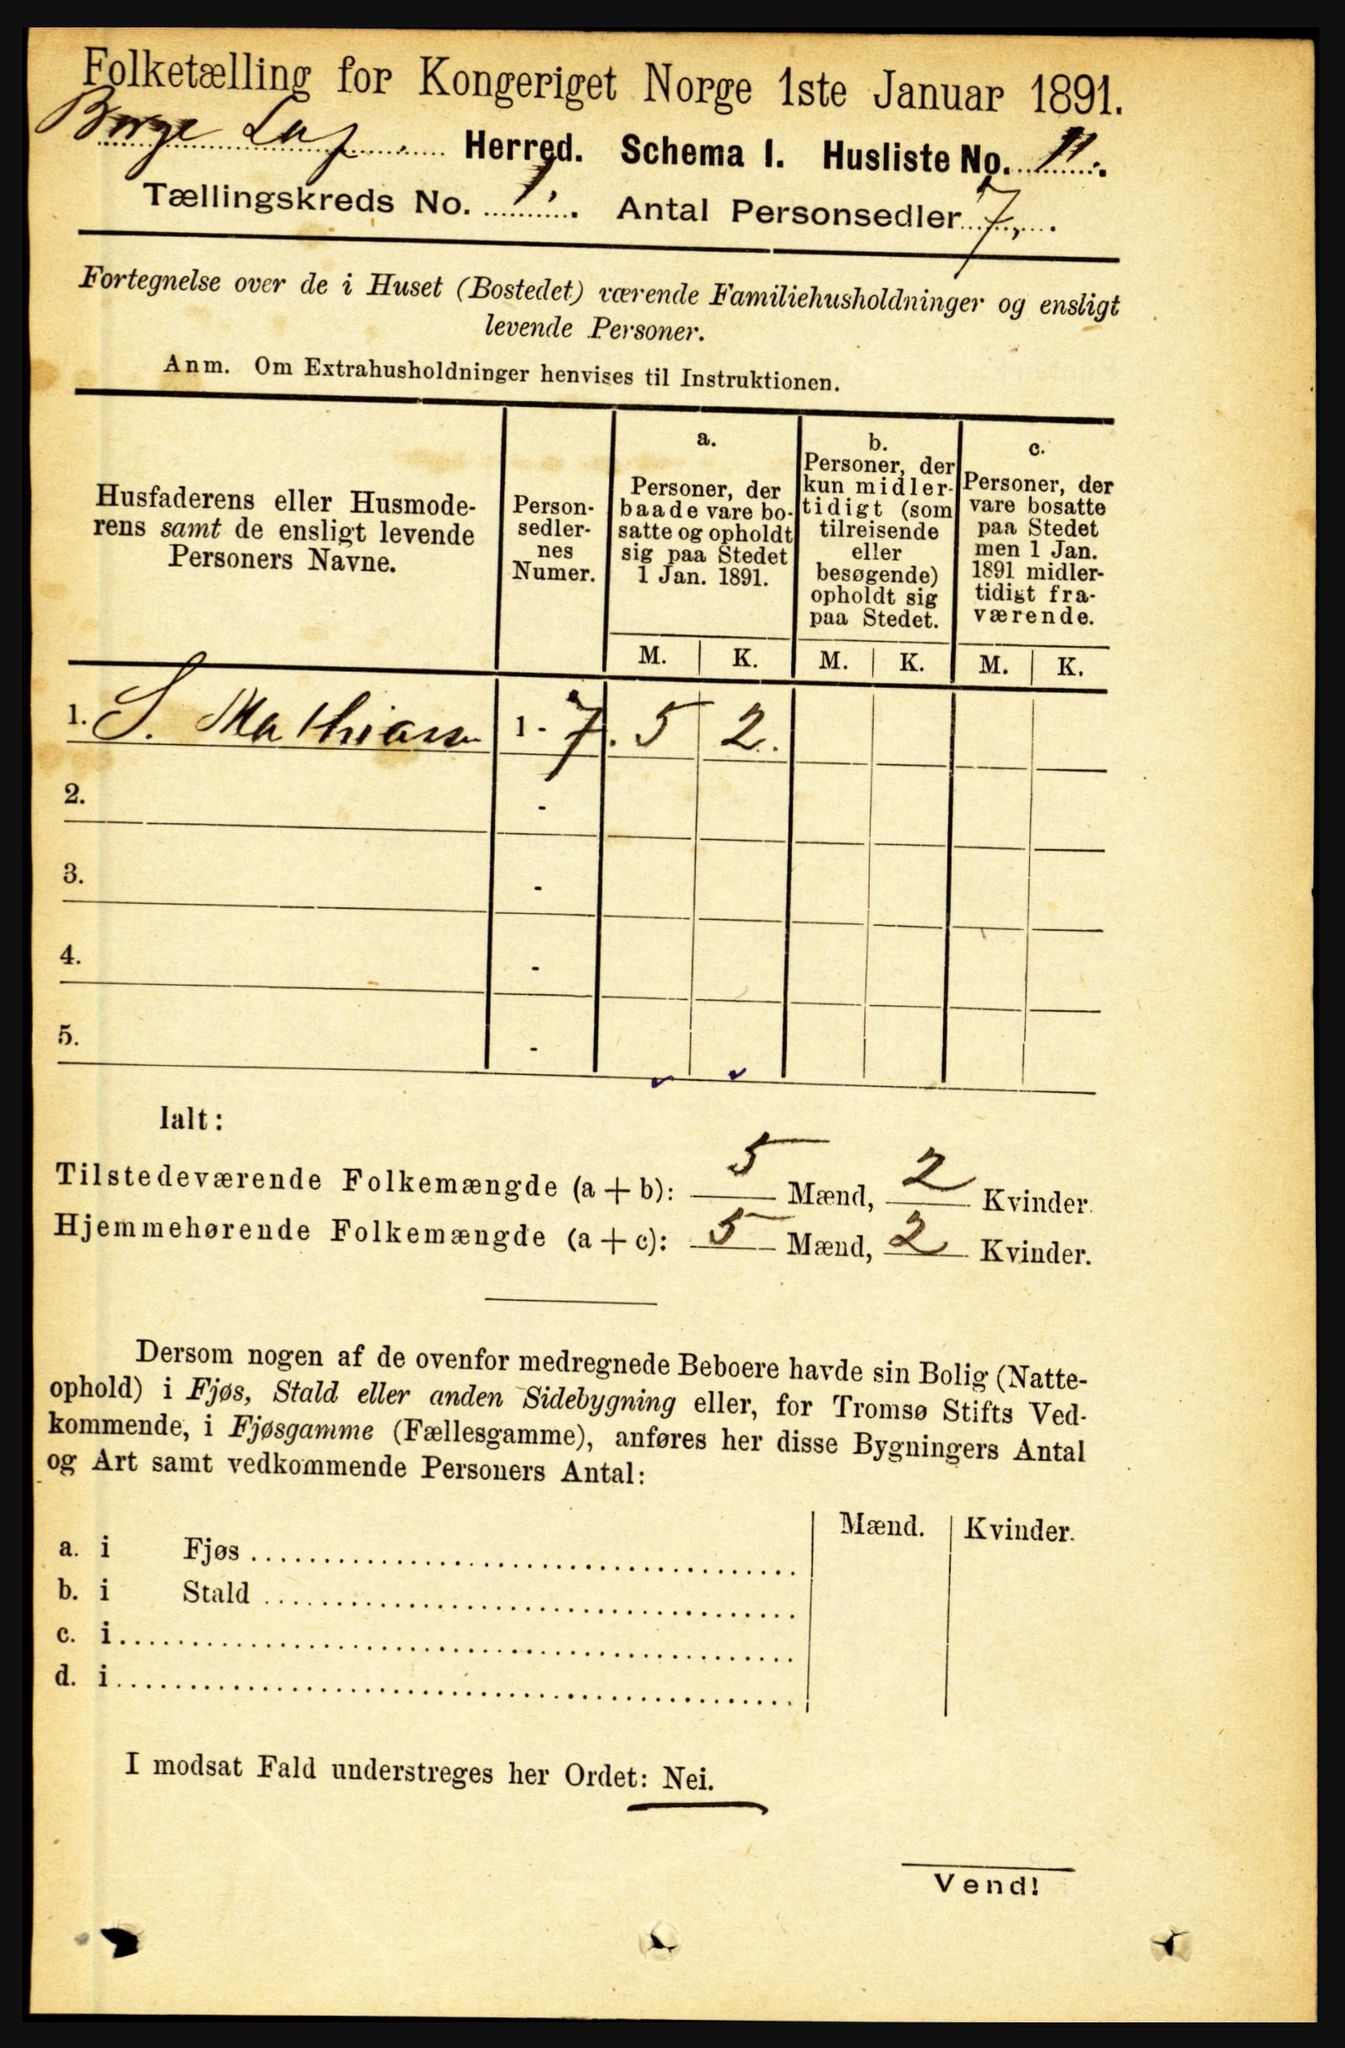 Folketælling for Kongeriget Norge 1ste Januar 1891.
Borge Herred. Schema I. Husliste No. 11.
Tællingskreds No. 1. Antal Personsedler 7,.
Fortegnelse over de i Huset (Bostedet) værende Familiehusholdninger og ensligt
levende Personer.
Anm. Om Extrahusholdninger henvises til Instruktionen.
Husfaderens eller Husmode-
rens samt de ensligt levende
Personers Navne.
Person-
sedler-
nes
Numer.
a.
Personer, der
baade vare bo-
satte og opholdt
sig paa Stedet
1 Jan. 1891.
b.
Personer, der
kun midler-
tidigt (som
tilreisende
eller
besøgende)
opholdt sig
paa Stedet.
c.
Personer, der
vare bosatte
paa Stedet
men 1 Jan.
1891 midler-
tidigt fra-
værende.
M. K. M. K. M. K.
1. S. Mathiassen 1 - 7. 5 2.
2. -
3. -
4. -
5. -
Ialt:
Tilstedeværende Folkemængde (a + b): 5 Mænd, 2 Kvinder.
Hjemmehørende Folkemængde (a + c): 5 Mænd, 2 Kvinder.
Dersom nogen af de ovenfor medregnede Beboere havde sin Bolig (Natte-
ophold) i Fjøs, Stald eller anden Sidebygning eller, for Tromsø Stifts Ved-
kommende, i Fjøsgamme (Fællesgamme), anføres her disse Bygningers Antal
og Art samt vedkommende Personers Antal:
Mænd. Kvinder.
a. i Fjøs
b. i Stald
c. i
d. i
I modsat Fald understreges her Ordet: Nei.
Vend!